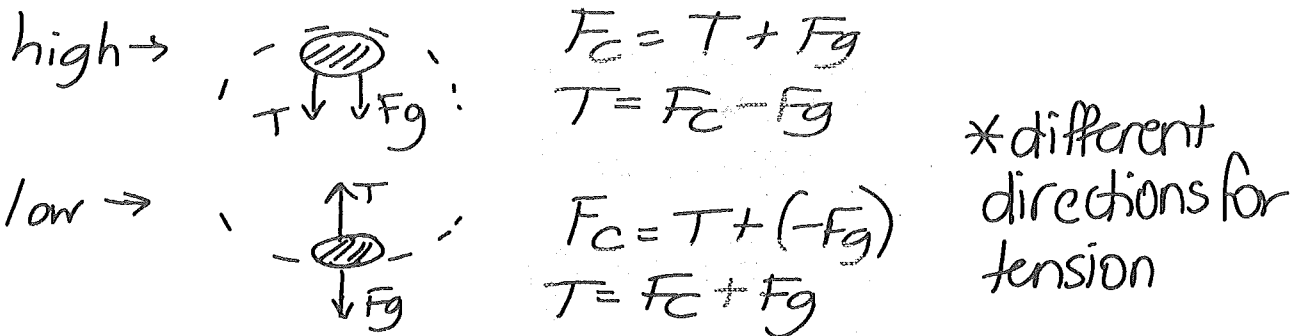 high→
T Fg
Fc = T + Fg
T = Fc - Fg
low →
T
Fg
Fc = T + (-Fg)
T = Fc + Fg
*different
directions for
tension